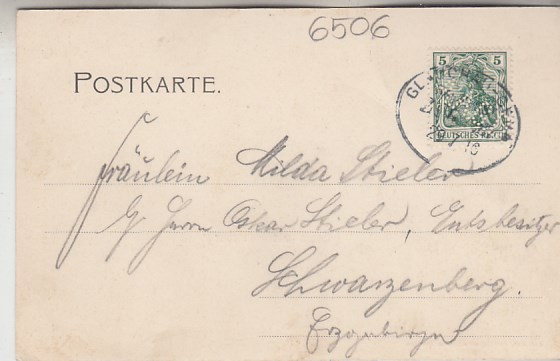 6506
POSTKARTE.
5 5
DEUTSCHES REICH
Fräulein Milda Stieler
p/ Herrn Oskar Stieler, Gutsbesitzer
Schwarzenberg.
Erzgebirge